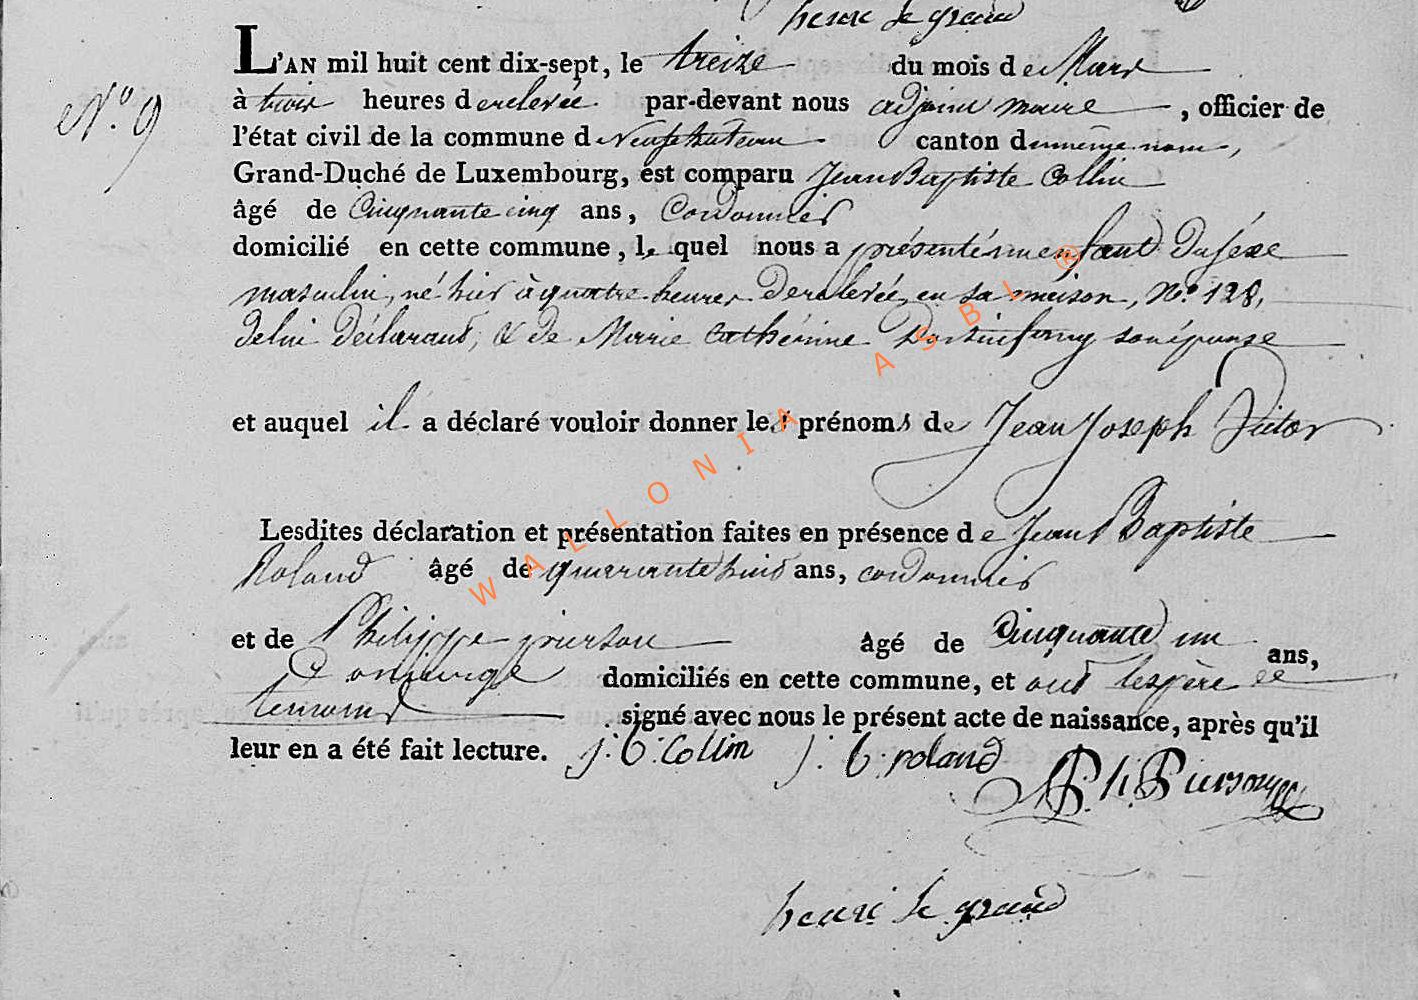 henri le grand
L'AN mil huit cent dix-sept, le treize du mois de Mars
N.° 9
à trois heures de relevée par-devant nous adjoint maire, officier de
l'état civil de la commune de Neufchateau canton du même nom,
Grand-Duché de Luxembourg, est comparu Jean Baptiste Collin
âgé de Cinquante cinq ans, Cordonnier
domicilié en cette commune, le quel nous a présenté un enfant du séxe
masculin, né hier à quatre heures de relevée, en sa maison, N.° 128,
de lui déclarant, & de Marie Cathérine son épouse
et auquel il a déclaré vouloir donner les prénoms de Jean Joseph Victor
Lesdites déclaration et présentation faites en présence de Jean Baptiste
Roland âgé de quarante huit ans, cordonnier
et de Philippe pierson âgé de Cinquante un ans,
Concierge domiciliés en cette commune, et ont les père et
temoins signé avec nous le présent acte de naissance, après qu'il
leur en a été fait lecture. j. b. Collin j. b. roland
Ph. Pierson
henri le grand
WALLONIA ASBL ®